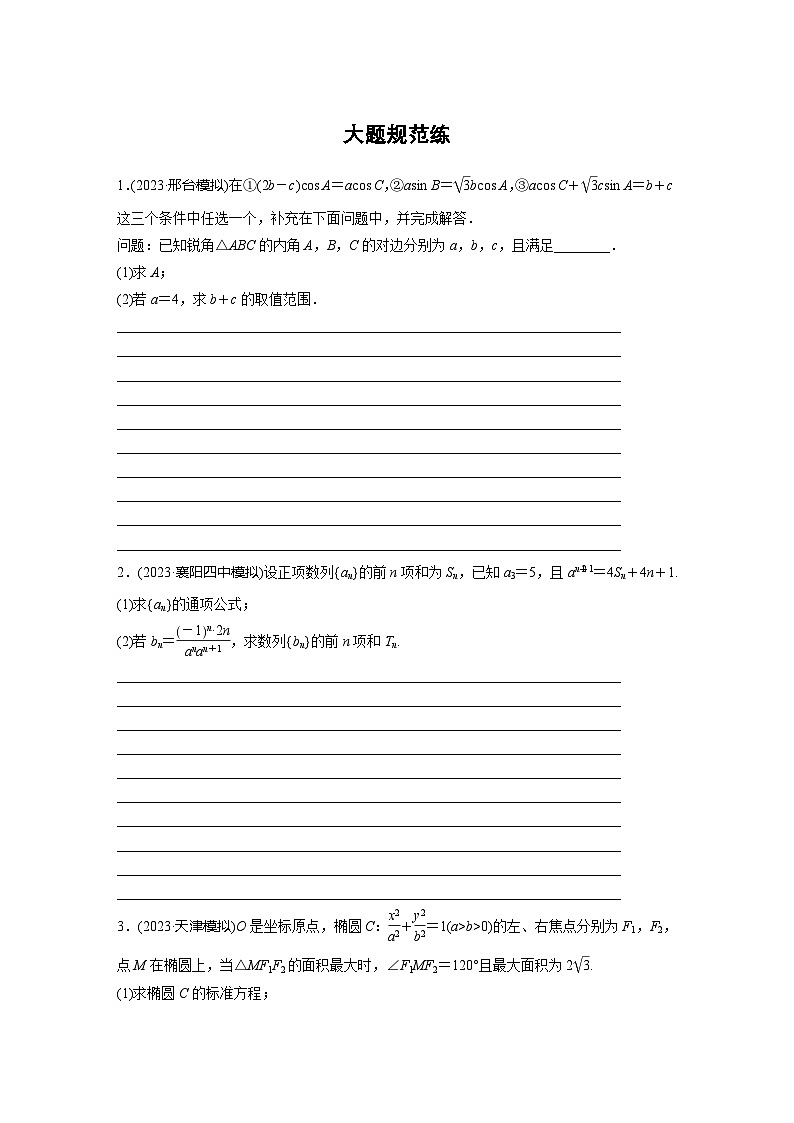 大题规范练
1.(2023·邢台模拟)在①(2b-c)cos A=acos C,②asin B=√3bcos A,③acos C+√3csin A=b+c
这三个条件中任选一个，补充在下面问题中，并完成解答．
问题：已知锐角△ABC的内角A，B，C的对边分别为a，b，c，且满足________．
(1)求A；
(2)若a=4，求b+c的取值范围．
2．(2023·襄阳四中模拟)设正项数列{aₙ}的前n项和为Sₙ，已知a₃=5，且 =4Sₙ+4n+1.
(1)求{aₙ}的通项公式；
(2)若bₙ=(-1)ⁿ·2n/aⁿaⁿ⁺¹，求数列{bₙ}的前n项和Tₙ.
3．(2023·天津模拟)O是坐标原点，椭圆C：x2/a2+y2/b2=1(a>b>0)的左、右焦点分别为F₁，F₂，
点M在椭圆上，当△MF₁F₂的面积最大时，∠F₁MF₂=120°且最大面积为2√3.
(1)求椭圆C的标准方程；